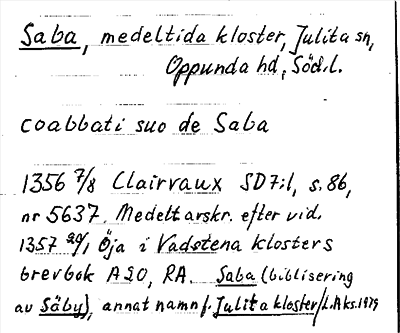 Saba, medeltida kloster, Julita sn,
Oppunda hd, Södl.
coabbati suo de Saba
1356 7/8 Clairvaux SD7:1, s.86,
nr 5637. Medelt arskr. efter vid.
1357 Öja i Vadstena klosters
brevbok A20, RA. Saba (biblisering
av Säby), annat namn f. Julita kloster/L.Aks.1979